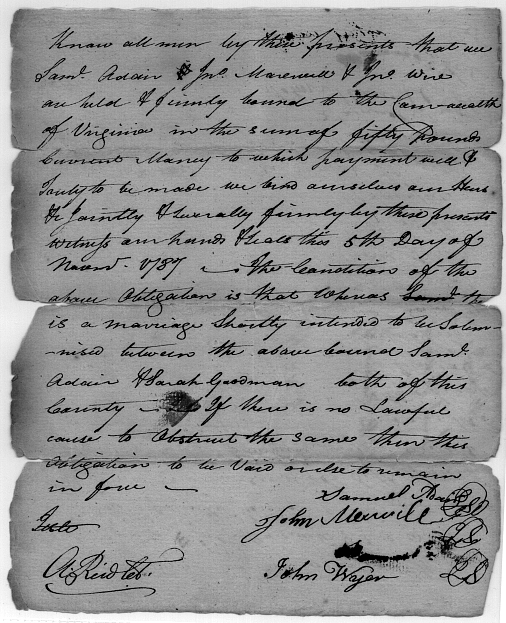 Know all men by these presents that we
Saml. Adair & Jno. Marewell & Jno. Wire
are held & firmly bound to the Comwealth
of Virginia in the sum of fifty Pounds
Current Money to which payment well &
Truly to be made we bind ourselves our Heirs
&c Jointly & severally firmly by these presents
Witness our hands & seals this 5th Day of
Novr. 1787 The Condition of the
above Obligation is that Whereas the
is a marriage Shortly intended to be Solem-
-nised between the above bound Saml.
Adair & Sarah Goodman both of this
County If there is no Lawful
cause to Obstruct the same then this
Obligation to be Void or else to remain
in force
Samuel LS
John Merwill LS
A. Reid
John Wayer LS